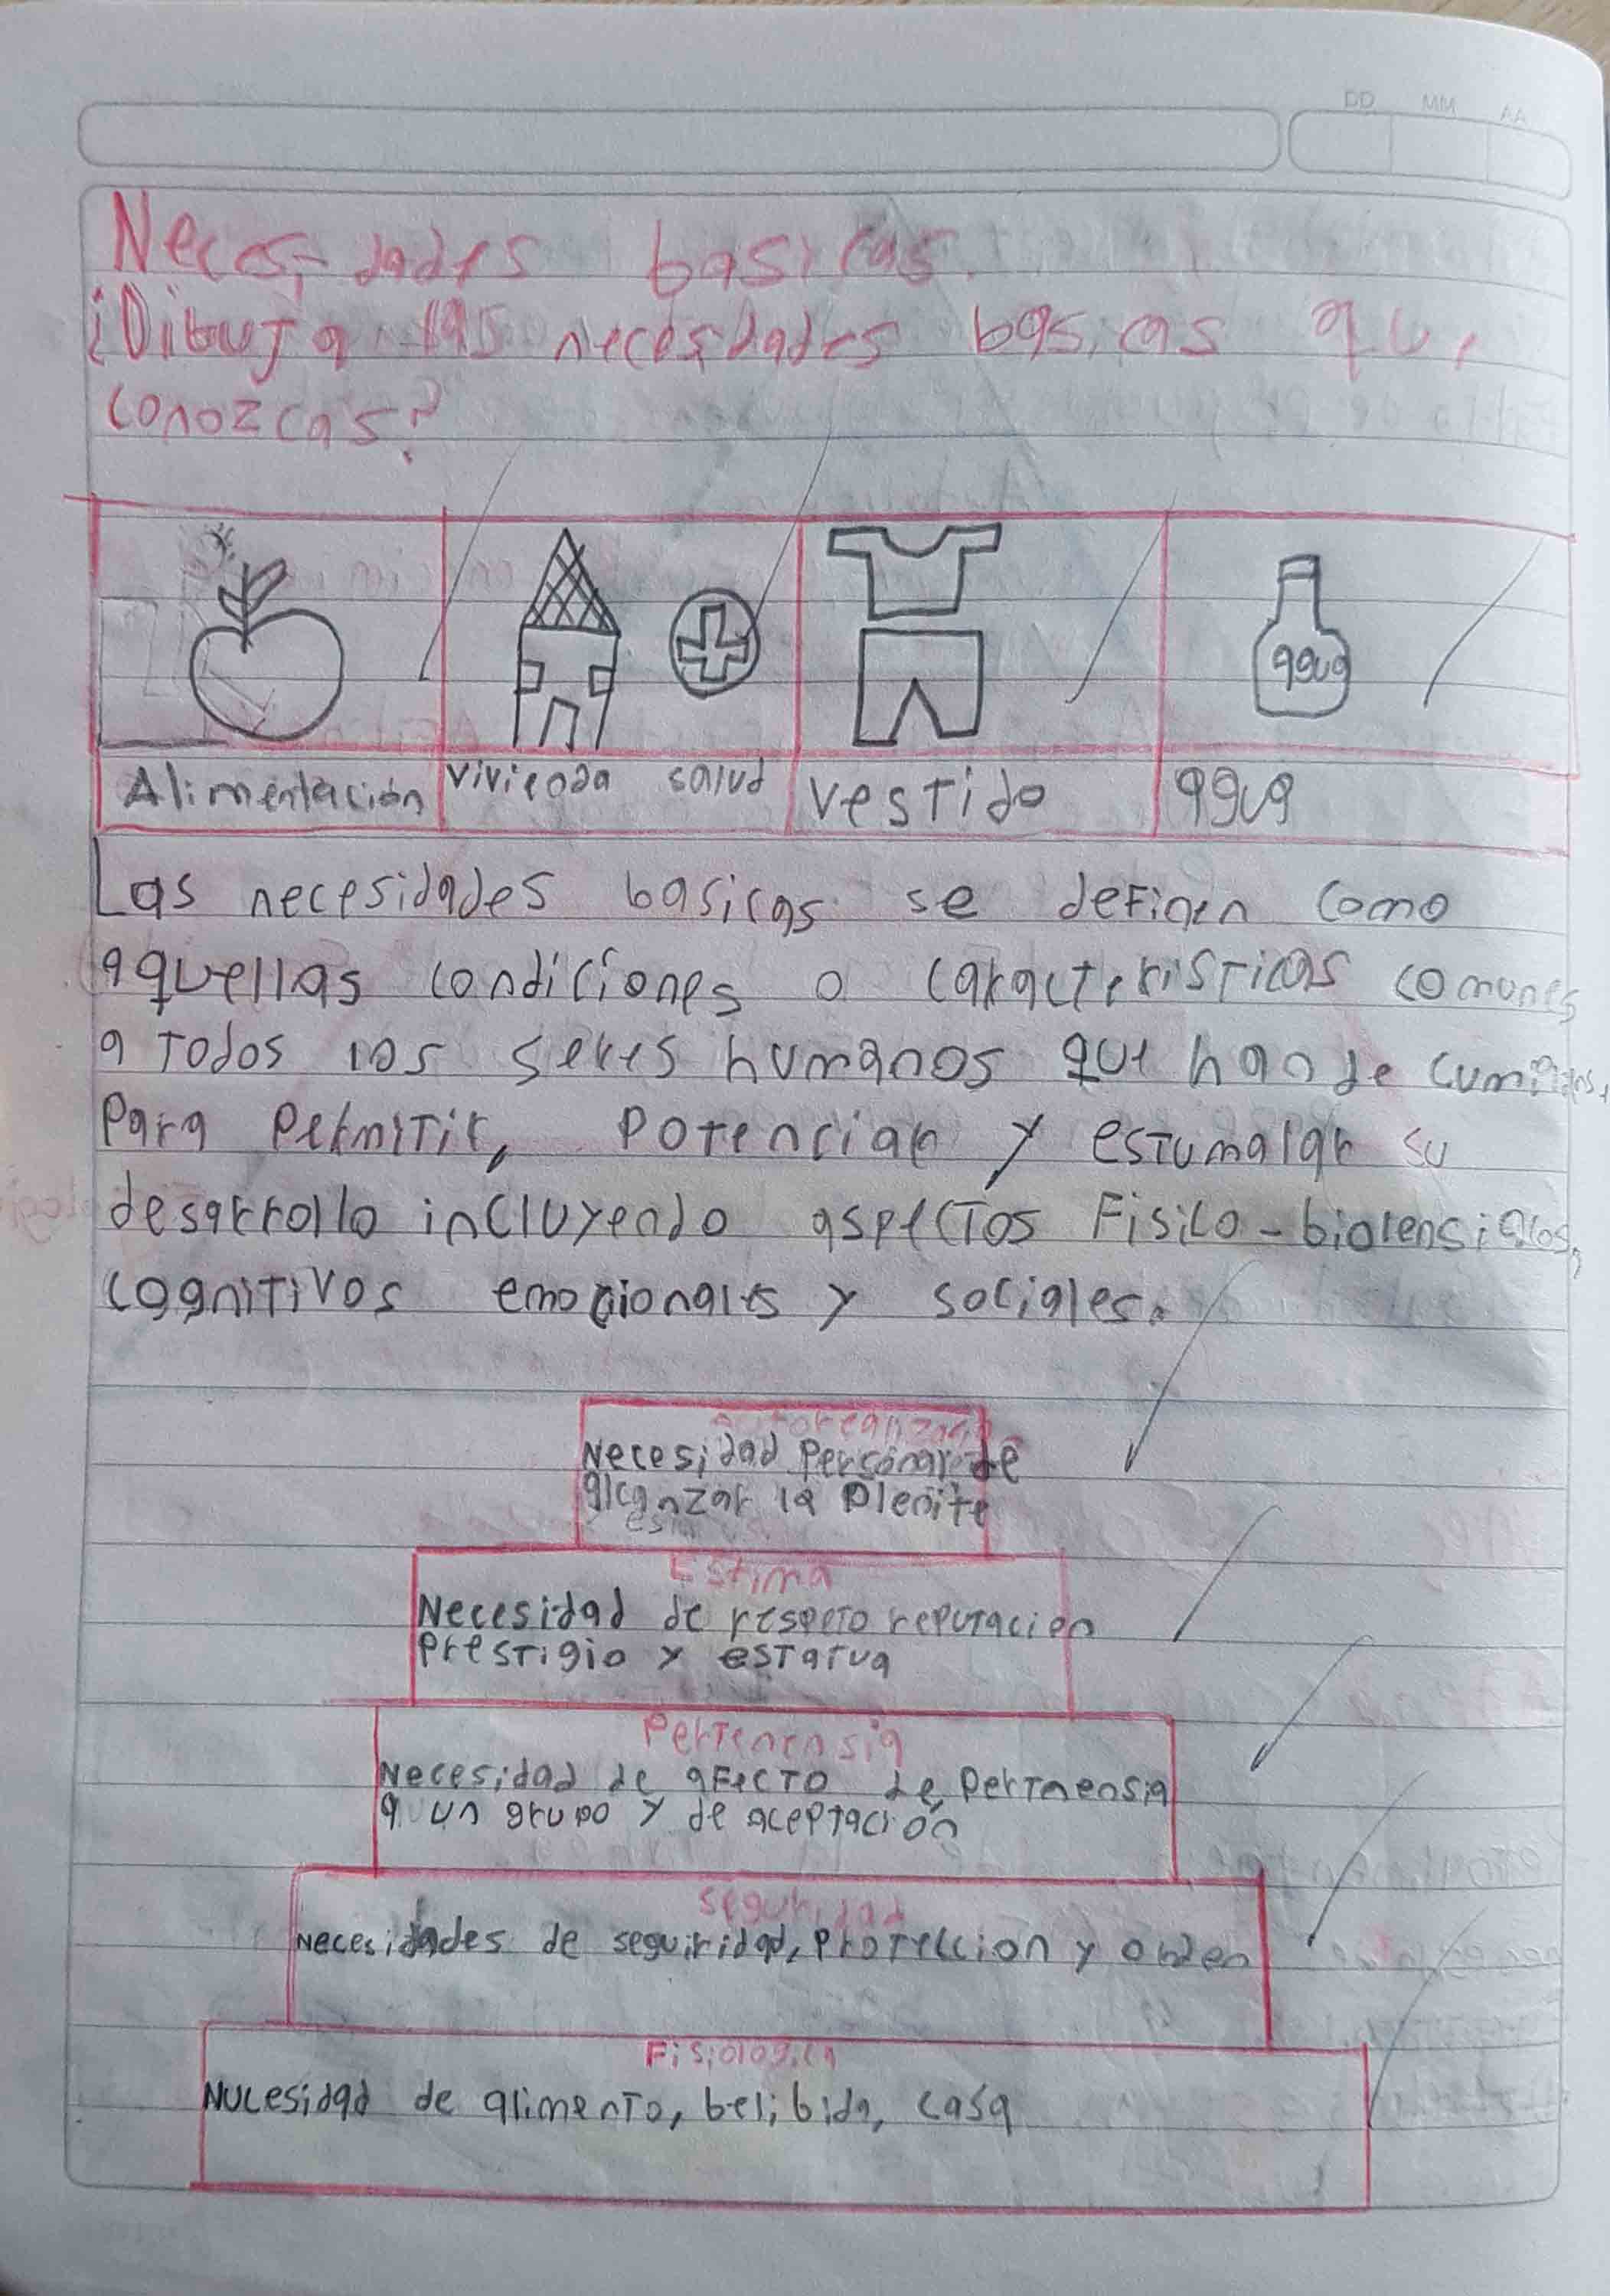 DD MM AA
Necesidades basicas.
¿Dibuja las necesidades basicas que
conozcas?
agua
Alimentación vivienda salud vestido agua
Las necesidades basicas se definen como
aquellas condiciones o caracteristicas comunes
a todos los seres humanos que han de
Para Permitir, Potenciar y estumalar su
desarrollo incluyendo aspectos Fisico-
cognitivos emocionales y sociales.
Necesidad Personal de
alcanzar la Plenite
Estima
Necesidad de respeto reputacion
Prestigio y estatua
Pertenensia
Necesidad de afecto de Pertnensia
a un grupo y de aceptación
seguridad
Necesidades de seguiridad, Proteccion y orden
Fisiologica
Nucesidad de alimento, belibida, casa